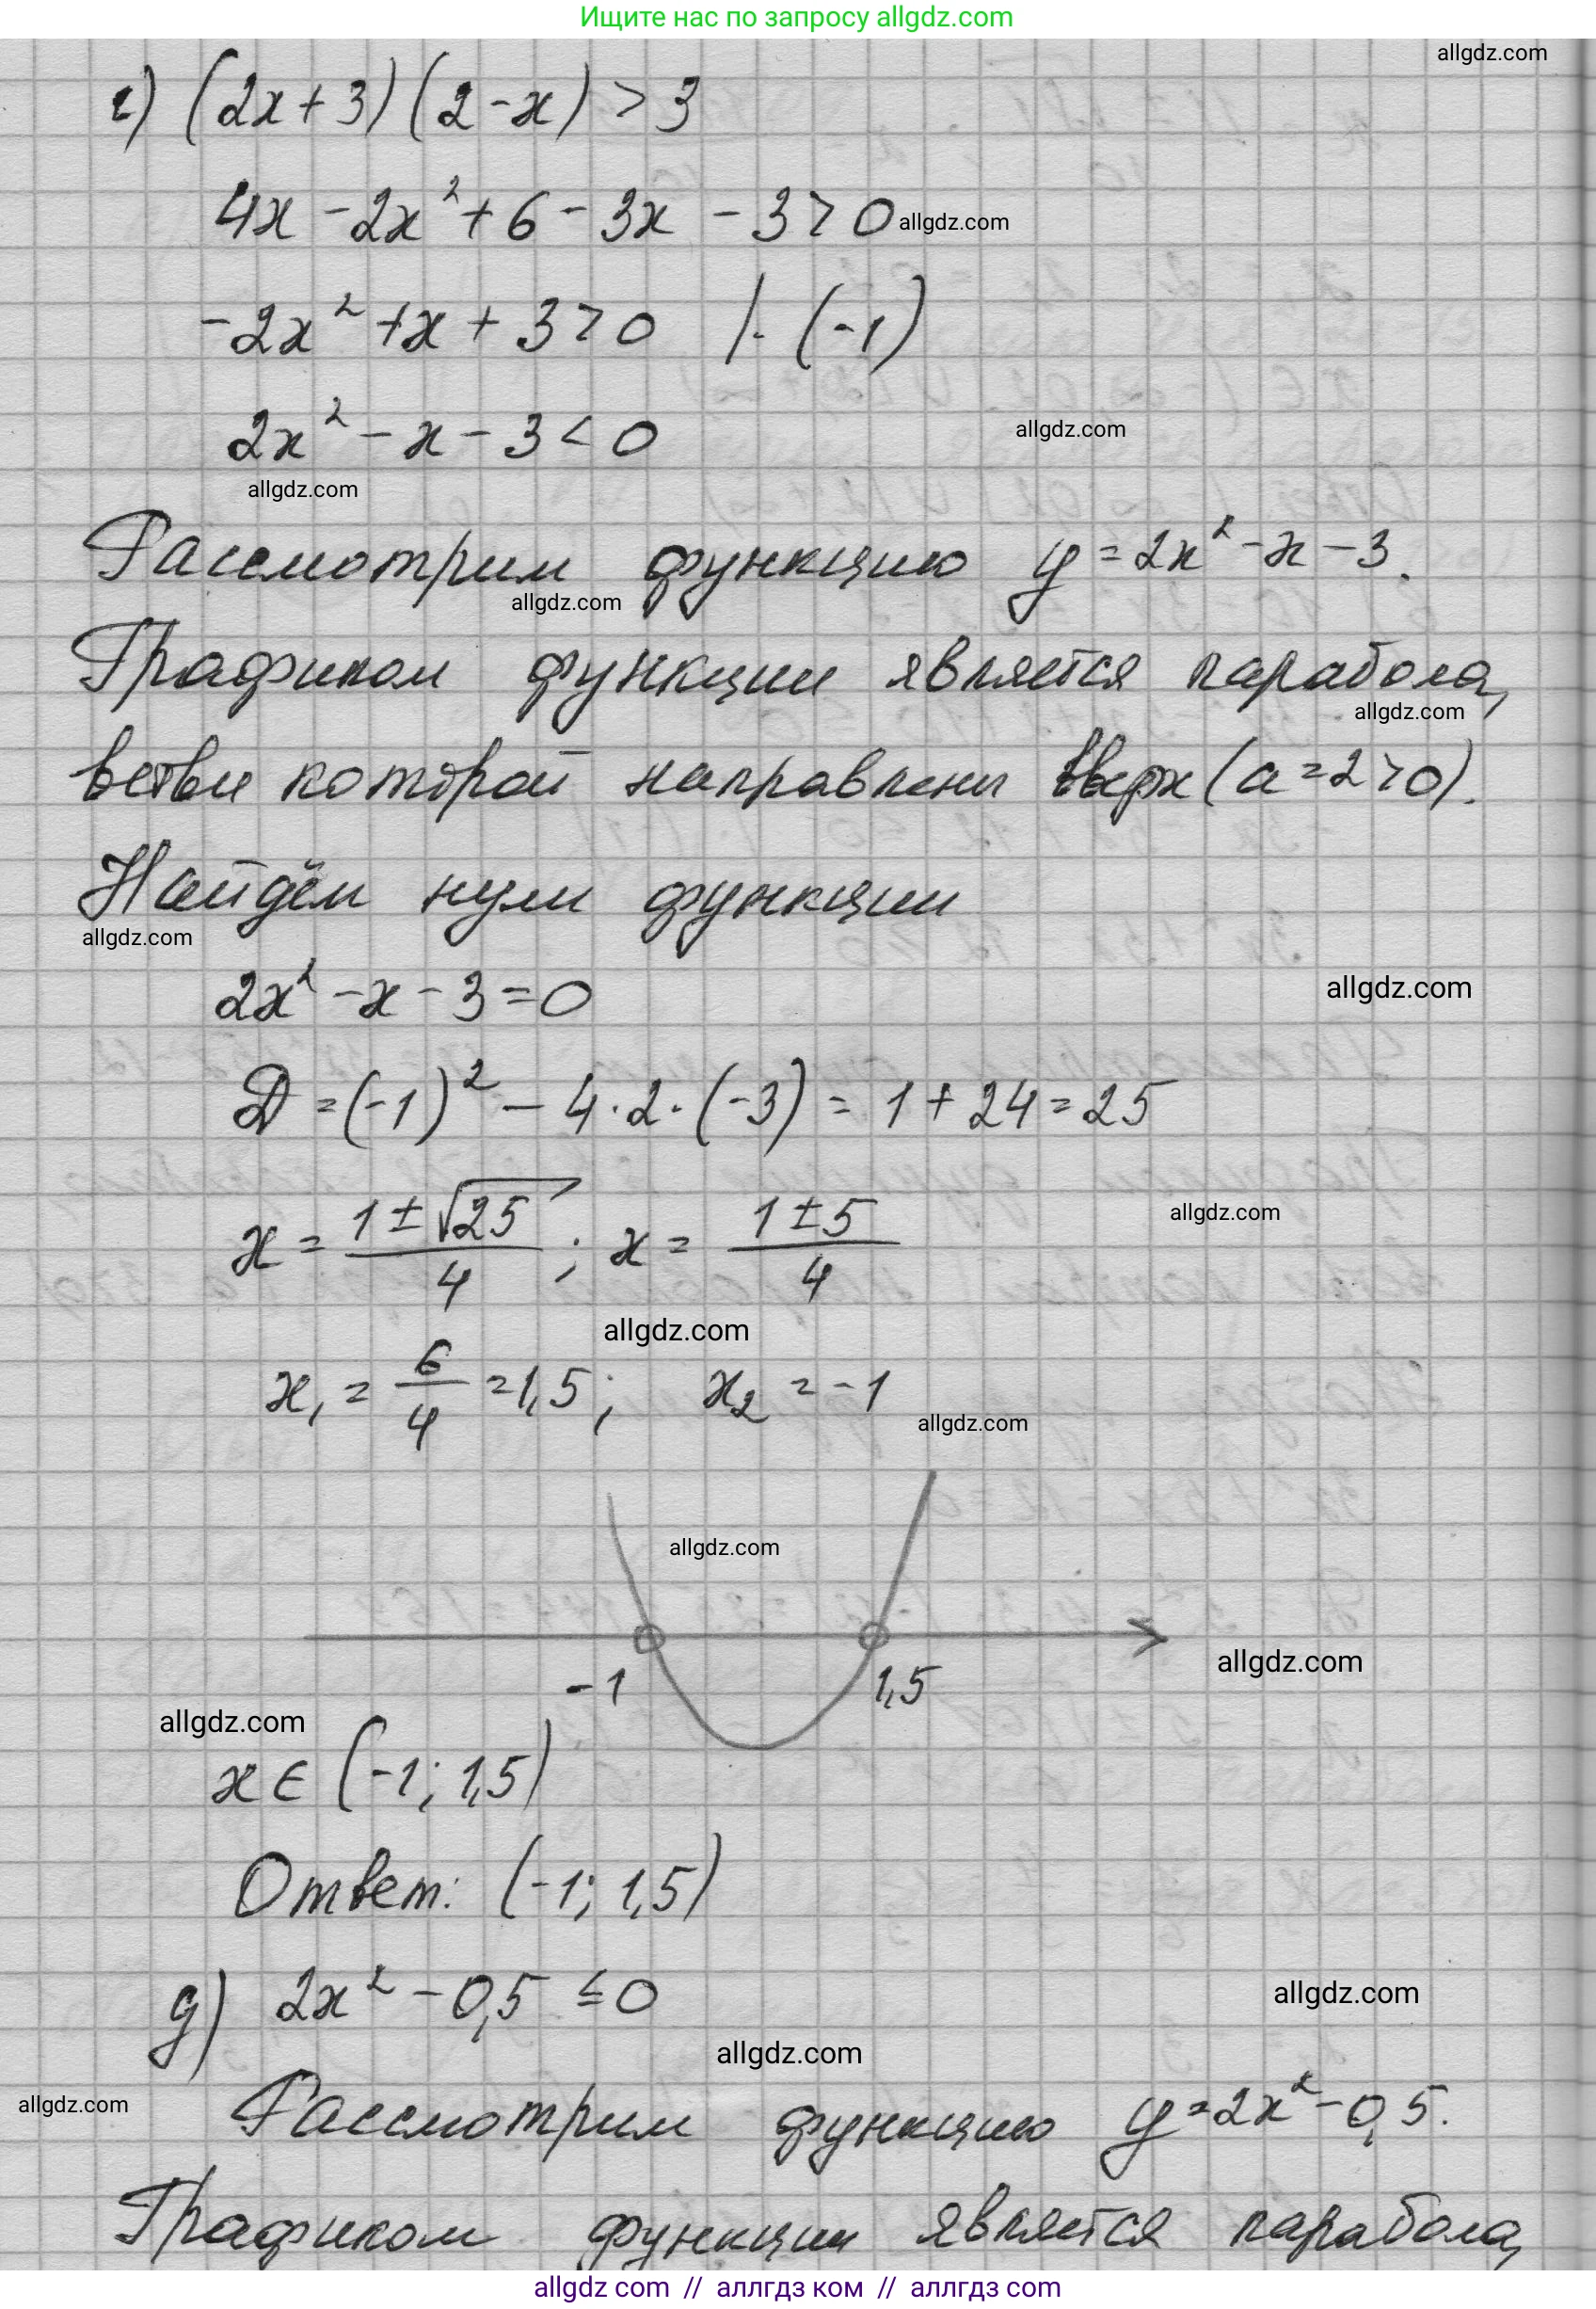 Ищите нас по запросу allgdz.com
allgdz.com
г) (2x+3)(2-x) > 3
4x - 2x² + 6 - 3x - 3 > 0 allgdz.com
-2x² + x + 3 > 0 |·(-1)
2x² - x - 3 < 0 allgdz.com
allgdz.com
Рассмотрим функцию y = 2x² - x - 3.
allgdz.com
Графиком функции является парабола,
allgdz.com
ветви которой направлены вверх (a = 2 > 0).
Найдём нули функции
allgdz.com
2x² - x - 3 = 0 allgdz.com
D = (-1)² - 4·2·(-3) = 1 + 24 = 25
x = (1 ± √25)/4 ; x = (1 ± 5)/4 allgdz.com
allgdz.com
x₁ = 6/4 = 1,5 ; x₂ = -1
allgdz.com
allgdz.com
-1 1,5 allgdz.com
allgdz.com
x ∈ (-1; 1,5)
Ответ: (-1; 1,5)
д) 2x² - 0,5 ≤ 0 allgdz.com
allgdz.com
allgdz.com
Рассмотрим функцию y = 2x² - 0,5.
Графиком функции является парабола,
allgdz com // аллгдз ком // аллгдз com